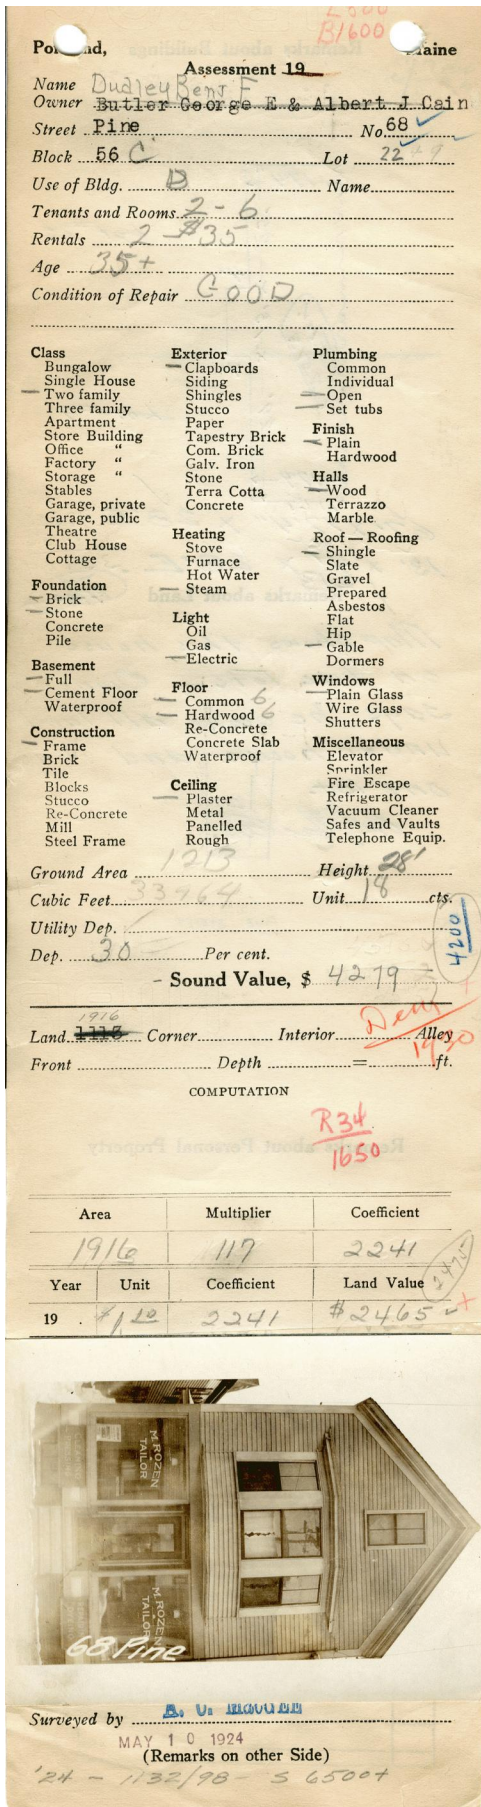 L 500
B1600
Portland, Maine
Assessment 19
Name Dudley Benj F
Owner Butler George E & Albert J Cain
Street Pine No. 68
Block 56 C Lot 22
Use of Bldg. D Name
Tenants and Rooms 2 - 6
Rentals 2 - $35
Age 35+
Condition of Repair GOOD
Class
Bungalow
Single House
Two family
Three family
Apartment
Store Building
Office "
Factory "
Storage "
Stables
Garage, private
Garage, public
Theatre
Club House
Cottage
Foundation
Brick
Stone
Concrete
Pile
Basement
Full
Cement Floor
Waterproof
Construction
Frame
Brick
Tile
Blocks
Stucco
Re-Concrete
Mill
Steel Frame
Exterior
Clapboards
Siding
Shingles
Stucco
Paper
Tapestry Brick
Com. Brick
Galv. Iron
Stone
Terra Cotta
Concrete
Heating
Stove
Furnace
Hot Water
Steam
Light
Oil
Gas
Electric
Floor
Common 6
Hardwood 6
Re-Concrete
Concrete Slab
Waterproof
Ceiling
Plaster
Metal
Panelled
Rough
Plumbing
Common
Individual
Open
Set tubs
Finish
Plain
Hardwood
Halls
Wood
Terrazzo
Marble
Roof — Roofing
Shingle
Slate
Gravel
Prepared
Asbestos
Flat
Hip
Gable
Dormers
Windows
Plain Glass
Wire Glass
Shutters
Miscellaneous
Elevator
Sprinkler
Fire Escape
Refrigerator
Vacuum Cleaner
Safes and Vaults
Telephone Equip.
Ground Area 1213 Height 28'
Cubic Feet 33964 Unit 18 cts.
Utility Dep.
4200
Dep. 30 Per cent.
Sound Value, $ 4279
1916
Land 1118 Corner Interior Alley
1930
Front Depth = ft.
COMPUTATION
R34
1650
Area Multiplier Coefficient
1916 117 2241
2475
Year Unit Coefficient Land Value
19 . $1.10 2241 $2465
M. ROZEN
TAILOR
M. ROZEN
TAILOR
68 Pine
Surveyed by A. C. MacGEE
MAY 10 1924
(Remarks on other Side)
'24 - 1132/98 - S 6500+